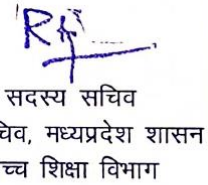 सदस्य सचिव
मध्यप्रदेश शासन
शिक्षा विभाग